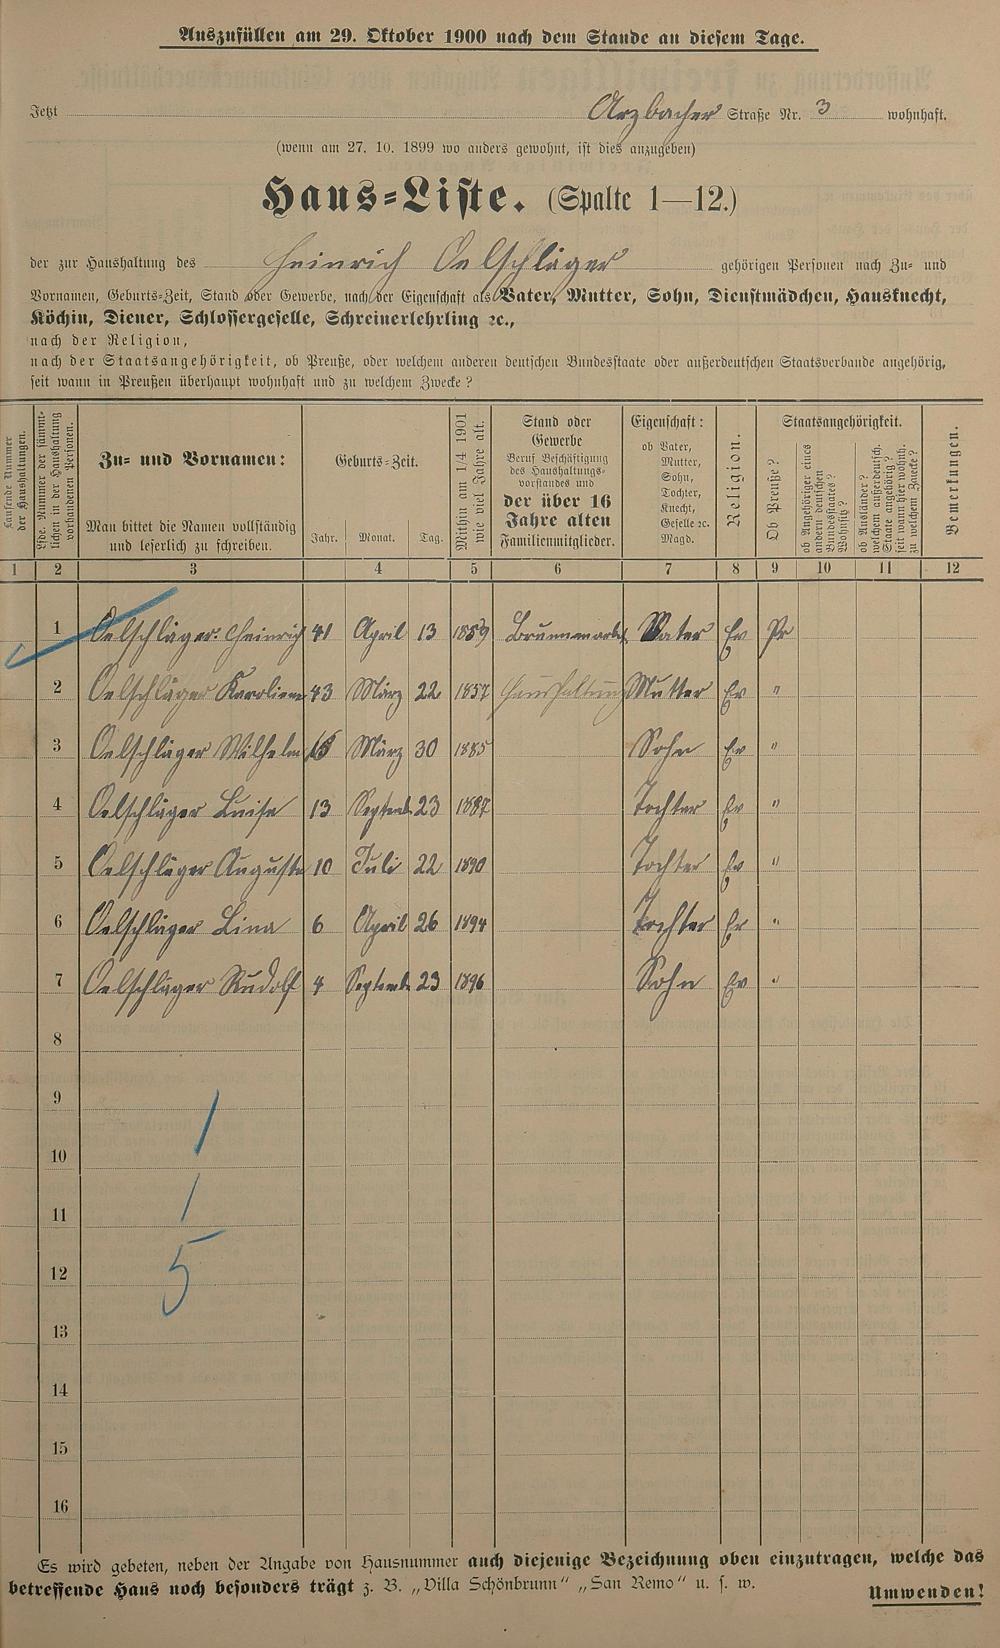 Auszufüllen am 29. Oktober 1900 nach dem Stande an diesem Tage.
Jetzt Arzbacher Straße Nr. 3 wohnhaft.
(wenn am 27. 10. 1899 wo anders gewohnt, ist dies anzugeben)
Haus=Liste. (Spalte 1—12.)
der zur Haushaltung des Heinrich Oelschläger gehörigen Personen nach Zu= und
Vornamen, Geburts=Zeit, Stand oder Gewerbe, nach der Eigenschaft als Vater, Mutter, Sohn, Dienstmädchen, Hausknecht,
Köchin, Diener, Schlossergeselle, Schreinerlehrling ꝛc.,
nach der Religion,
nach der Staatsangehörigkeit, ob Preuße, oder welchem anderen deutschen Bundesstaate oder außerdeutschen Staatsverbande angehörig,
seit wann in Preußen überhaupt wohnhaft und zu welchem Zwecke?
Laufende Nummer der Haushaltungen.
Lfde. Nummer der sämmtlichen in der Haushaltung vorhandenen Personen.
Zu= und Vornamen:
Man bittet die Namen vollständig
und leserlich zu schreiben.
Geburts=Zeit.
Jahr. Monat. Tag.
Mithin am 1/4 1901 wie viel Jahre alt.
Stand oder
Gewerbe
Beruf Beschäftigung
des Haushaltungs=
vorstandes und
der über 16
Jahre alten
Familienmitglieder.
Eigenschaft:
ob Vater,
Mutter,
Sohn,
Tochter,
Knecht,
Geselle ꝛc.
Magd.
Religion.
Staatsangehörigkeit.
Ob Preuße?
ob Angehöriger eines andern deutschen Bundesstaates? Wohnsitz?
ob Ausländer? welchem außerdeutsch. Staate angehörig? seit wann hier wohnh. zu welchem Zwecke?
Bemerkungen.
1 2 3 4 5 6 7 8 9 10 11 12
1 Oelschläger. Heinrich 41 April 13 1859 Vater Ev Pr
2 Oelschläger Karoline 43 März 22 1857 Haushaltung Mutter Ev "
3 Oelschläger Wilhelm 15 März 30 1885 Sohn Ev "
4 Oelschläger Luise 13 Septemb. 23 1887 Tochter Ev "
5 Oelschläger Auguste 10 Juli 22 1890 Tochter Ev "
6 Oelschläger Lina 6 April 26 1894 Tochter Ev "
7 Oelschläger Rudolf 4 Septemb. 23 1896 Sohn Ev "
8
9
1
10
11
1
12
5
13
14
15
16
Es wird gebeten, neben der Angabe von Hausnummer auch diejenige Bezeichnung oben einzutragen, welche das
betreffende Haus noch besonders trägt z. B. „Villa Schönbrunn“ „San Remo“ u. s. w.
Umwenden!